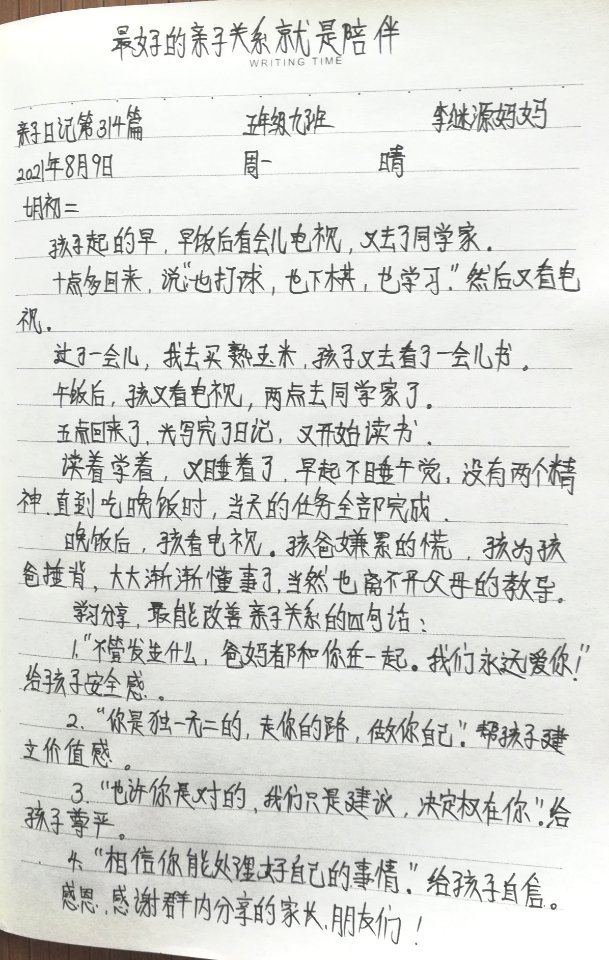 最好的亲子关系就是陪伴
WRITING TIME
亲子日记第314篇 五年级九班 李继源妈妈
2021年8月9日 周一 晴
七月初二
孩子起的早，早饭后看会儿电视，又去了同学家。
十点多回来，说“也打球，也下棋，也学习。”然后又看电
视。
过了一会儿，我去买熟玉米，孩子又去看了一会儿书。
午饭后，孩又看电视，两点去同学家了。
五点回来了，先写完了日记，又开始读书．
读着学着，又睡着了，早起不睡午觉，没有两个精
神．直到吃晚饭时，当天的任务全部完成．
晚饭后，孩看电视。孩爸嫌累的慌，孩为孩
爸捶背，大大渐渐懂事了，当然也离不开父母的教导。
学习分享，最能改善亲子关系的四句话：
1.“不管发生什么，爸妈都和你在一起。我们永远爱你！”
给孩子安全感．。
2.“你是独一无二的，走你的路，做你自己”．帮孩子建
立价值感．。
3.“也许你是对的，我们只是建议，决定权在你”．给
孩子尊严。
4.“相信你能处理好自己的事情．”给孩子自信。
感恩，感谢群内分享的家长、朋友们！